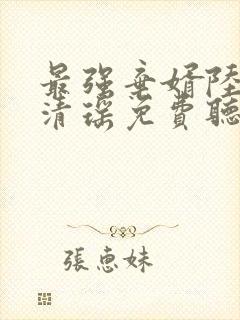 最强弃婿陸
清瑶免費聽
張惠妹